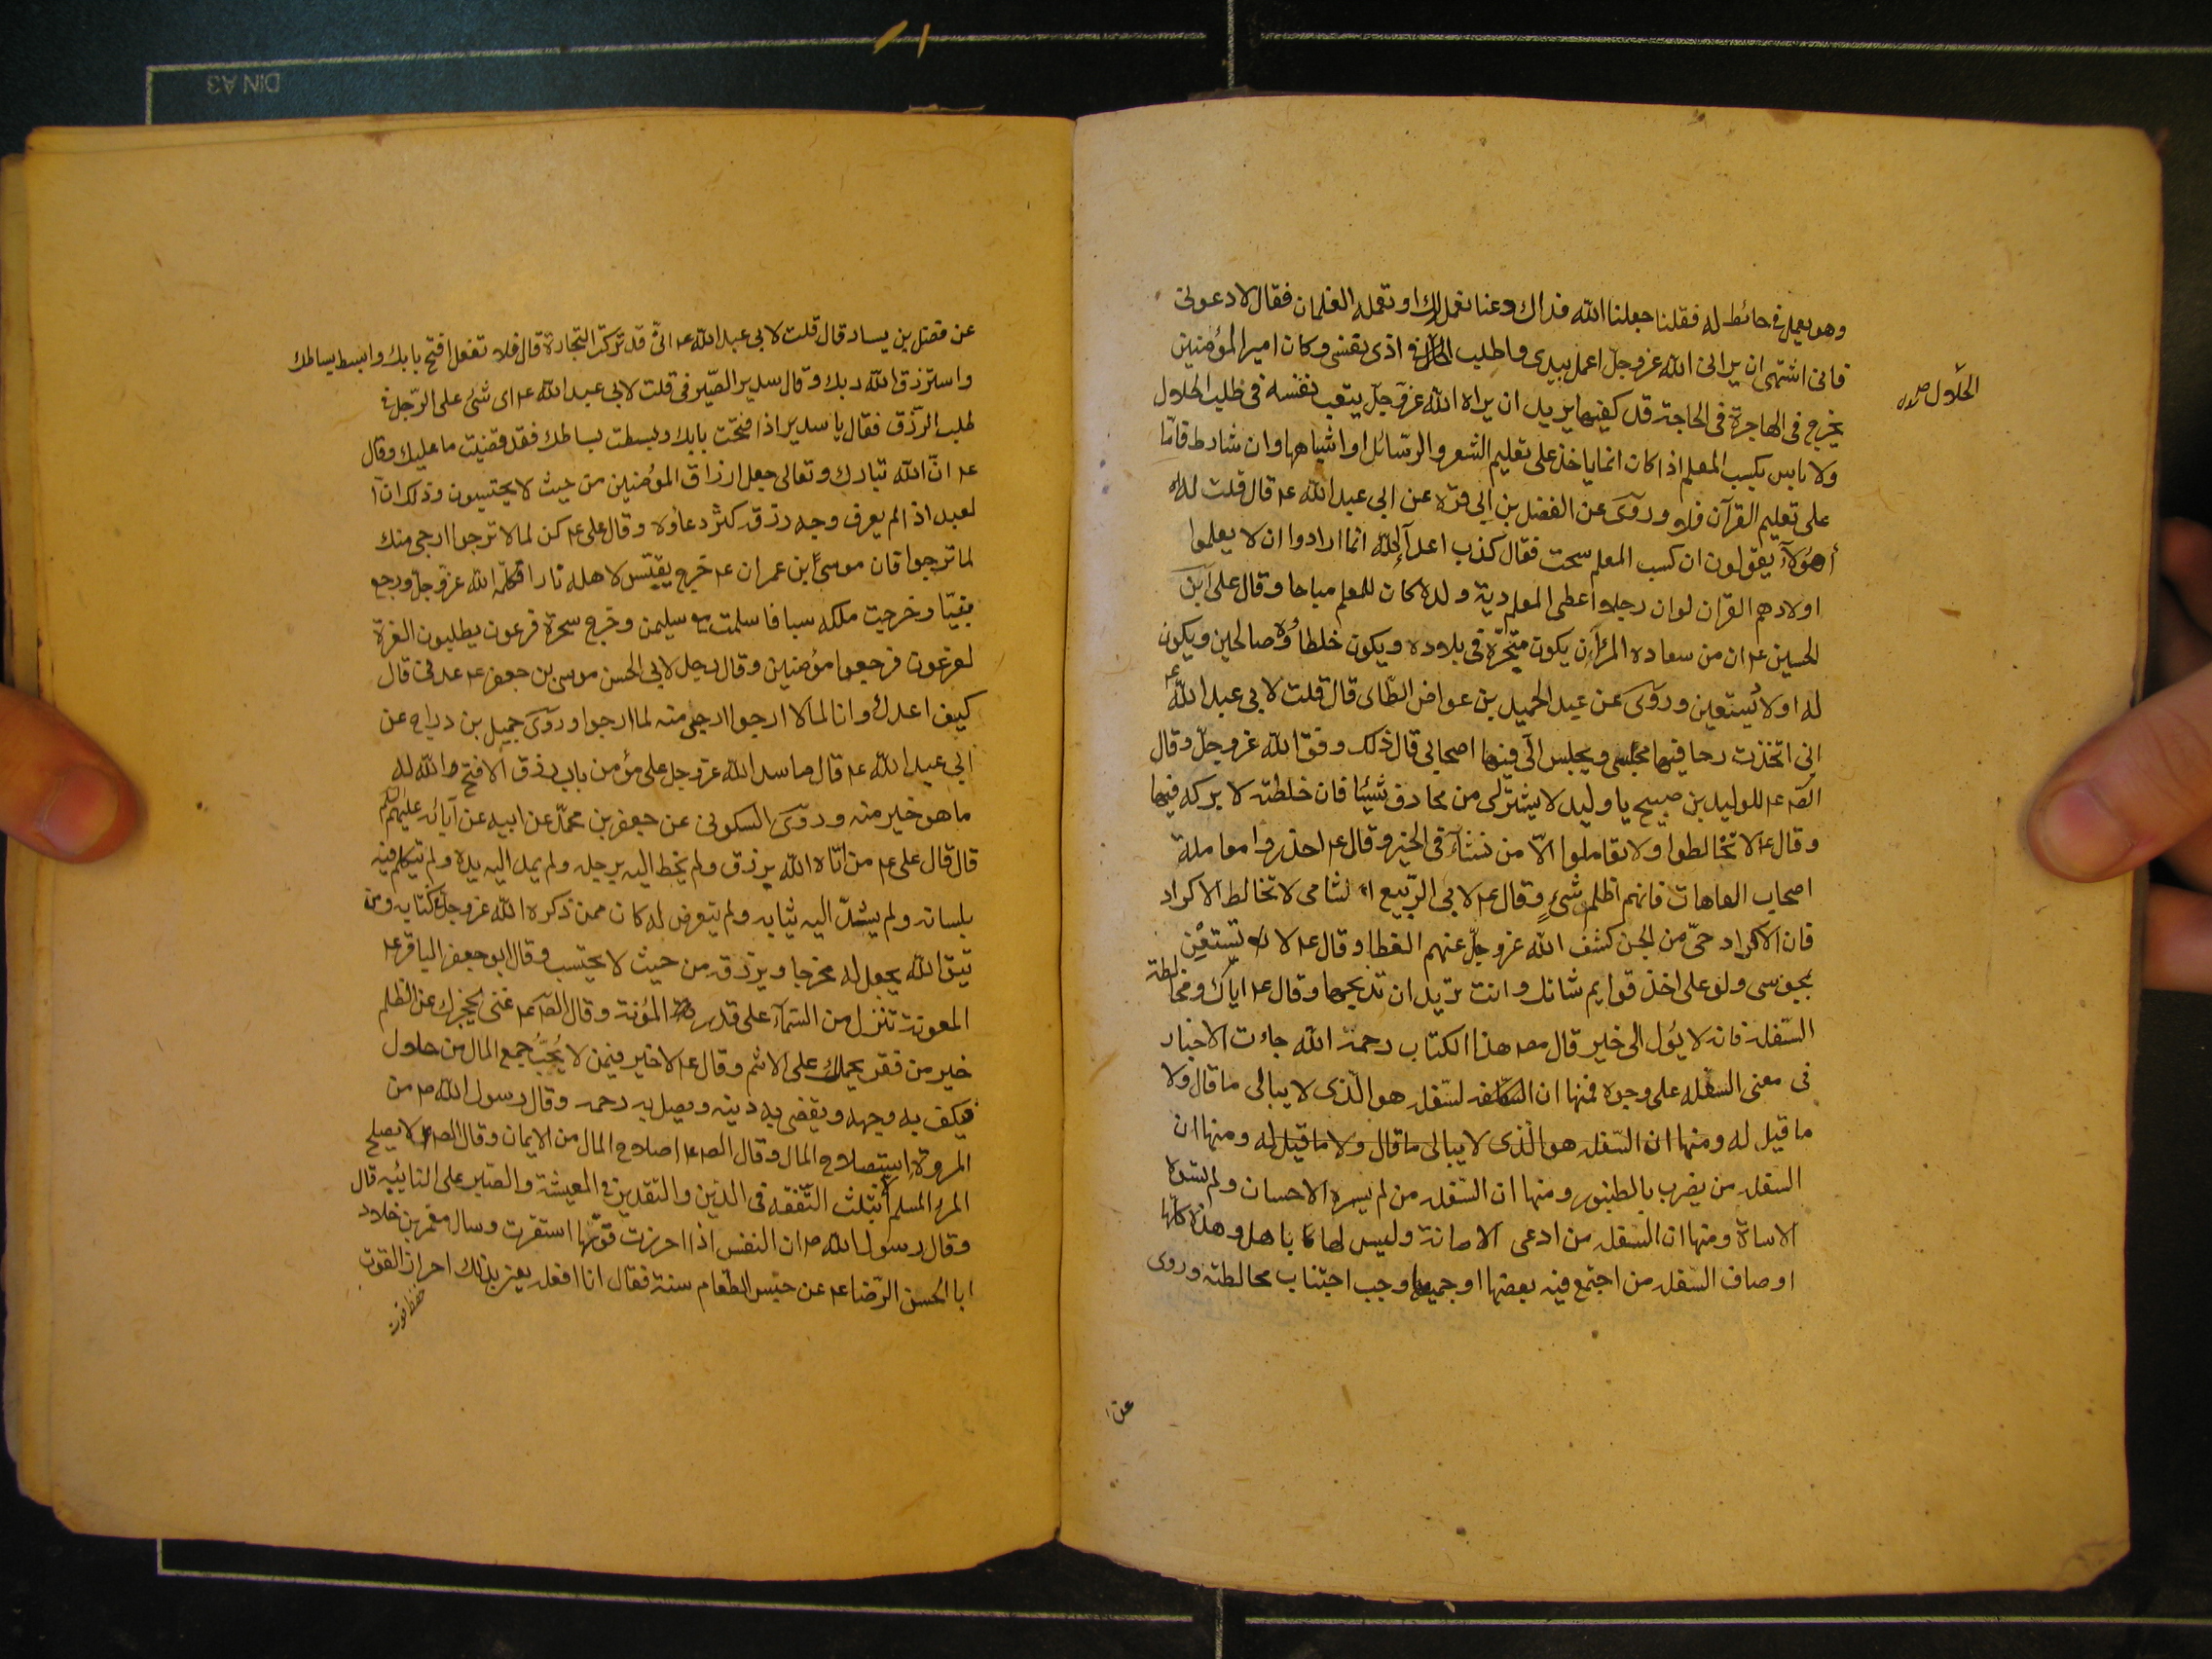 وهو يعمل فى حائط له فقلنا جعلنا الله فداك دعنا نعمل لك او تعمله الغلمان فقال لا دعونى
فانى اشتهى ان يرانى الله عز وجل اعمل بيدى واطلب الحلال فى اذى نفسى وكان امير المؤمنين
الحلال
يخرج فى الهاجرة فى الحاجة قد كفيها يريد ان يراه الله عز وجل يتعب نفسه فى طلب الحلال
ولا باس بكسب المعلم اذا كان انما ياخذ على تعليم الشعر والرسائل او اشباهها وان شارط فاما
على تعليم القرآن فلا وروى عن الفضل بن ابى قرة عن ابى عبد الله ع قال قلت له
أهؤلاء يقولون ان كسب المعلم سحت فقال كذب اعداء الله انما ارادوا ان لا يعلموا
اولادهم القران لو ان رجلا اعطى المعلم دية ولده كان للمعلم مباحا وقال على ابن
الحسين ع ان من سعاده المرء ان يكون متجره فى بلاده ويكون خلطاؤه صالحين ويكون
له اولاد يستعين وروى عن عبد الحميد بن عواض الطاى قال قلت لابى عبد الله ع
انى اتخذت رحا فيها مجلسى ويجلس الى فيها اصحابى قال ذلك رفق الله عز وجل وقال
الص ع للوليد بن صبيح يا وليد لا يشترلى من محارف شيئا فان خلطته لا بركه فيها
وقال ع لا تخالطوا ولا تعاملوا الا من نشأ فى الخير وقال ع احذروا معاملة
اصحاب العاهات فانهم اظلم شىء وقال ع لابى الربيع الشامى لا تخالط الاكراد
فان الاكراد حى من الجن كشف الله عز وجل عنهم الغطا وقال ع لا تستعن
بمجوسى ولو على اخذ قوايم شاتك وانت تريد ان تذبحها وقال ع اياك ومخالطة
السفلة فانه لا يؤل الى خير قال مص هذا الكتاب رحمة الله جاءت الاخبار
فى معنى السفله على وجوه فمنها ان السفله هو الذى لا يبالى ما قال ولا
ما قيل له ومنها ان السفله هو الذى لا يبالى ما قال ولا ما قيل له ومنها ان
السفله من يضرب بالطنبور ومنها ان السفله من لم يسره الاحسان ولم تسوه
الاساة ومنها ان السفله من ادعى الامانة وليس لها باهل وهذه كلها
اوصاف السفله من اجتمع فيه بعضها او جميعها وجب اجتناب مخالطته وروى
عن
عن فضل بن يسار قال قلت لابى عبد الله ع انى قد تركت التجارة قال فلا تفعل افتح بابك وابسط بساطك
واسترزق الله ربك وقال سدير الصيرفى قلت لابى عبد الله ع اى شىء على الرجل فى
طلب الرزق فقال يا سدير اذا فتحت بابك وبسطت بساطك فقد قضيت ما عليك وقال
ع ان الله تبارك وتعالى جعل ارزاق المؤمنين من حيث لا يحتسبون وذلك ان
لعبد اذا لم يعرف وجه رزقه كثر دعاؤه وقال على ع كن لما لا ترجوا ارجى منك
لما ترجوا فان موسى ابن عمران ع خرج يقتبس لاهله نارا فكلمه الله عز وجل ورجع
نبيا وخرجت ملكه سبا فاسلمت مع سليمن وخرج سحرة فرعون يطلبون العزة
لفرعون فرجعوا مؤمنين وقال رجل لابى الحسن موسى بن جعفر ع عدنى قال
كيف اعدك وانا لما لا ارجوا ارجى منه لما ارجوا وروى جميل بن دراج عن
ابى عبد الله ع قال ما سد الله عز وجل على مؤمن باب رزق الا فتح الله له
ما هو خير منه وروى السكونى عن جعفر بن محمد عن ابيه عن آبائه عليهم السلم
قال قال على ع من اتاه الله برزق ولم يخط اليه برجله ولم يمد اليه يده ولم يتكلم فيه
بلسانه ولم يشد اليه ثيابه ولم يتعرض له كان ممن ذكره الله عز وجل فى كتابه ومن
يتق الله يجعل له مخرجا ويرزقه من حيث لا يحتسب وقال ابو جعفر الباقر ع
المعونة تنزل من السماء على قدر المؤنة وقال الص ع غنى يحجزك عن الظلم
خير من فقر يحملك على الاثم وقال ع لا خير فيمن لا يحب جمع المال من حلال
فيكف به وجهه ويقضى به دينه ويصل به رحمه وقال رسول الله ص من
المروة استصلاح المال وقال الص ع اصلاح المال من الايمان وقال الص ع لا يصلح
المرء المسلم الا بثلث التفقه فى الدين والتقدير فى المعيشة والصبر على النائبه قال
وقال رسول الله ص ان النفس اذا احرزت قوتها استقرت وسال معمر بن خلاد
ابا الحسن الرضا ع عن حبس الطعام سنة فقال انا افعله يعنى بذلك احراز القوت